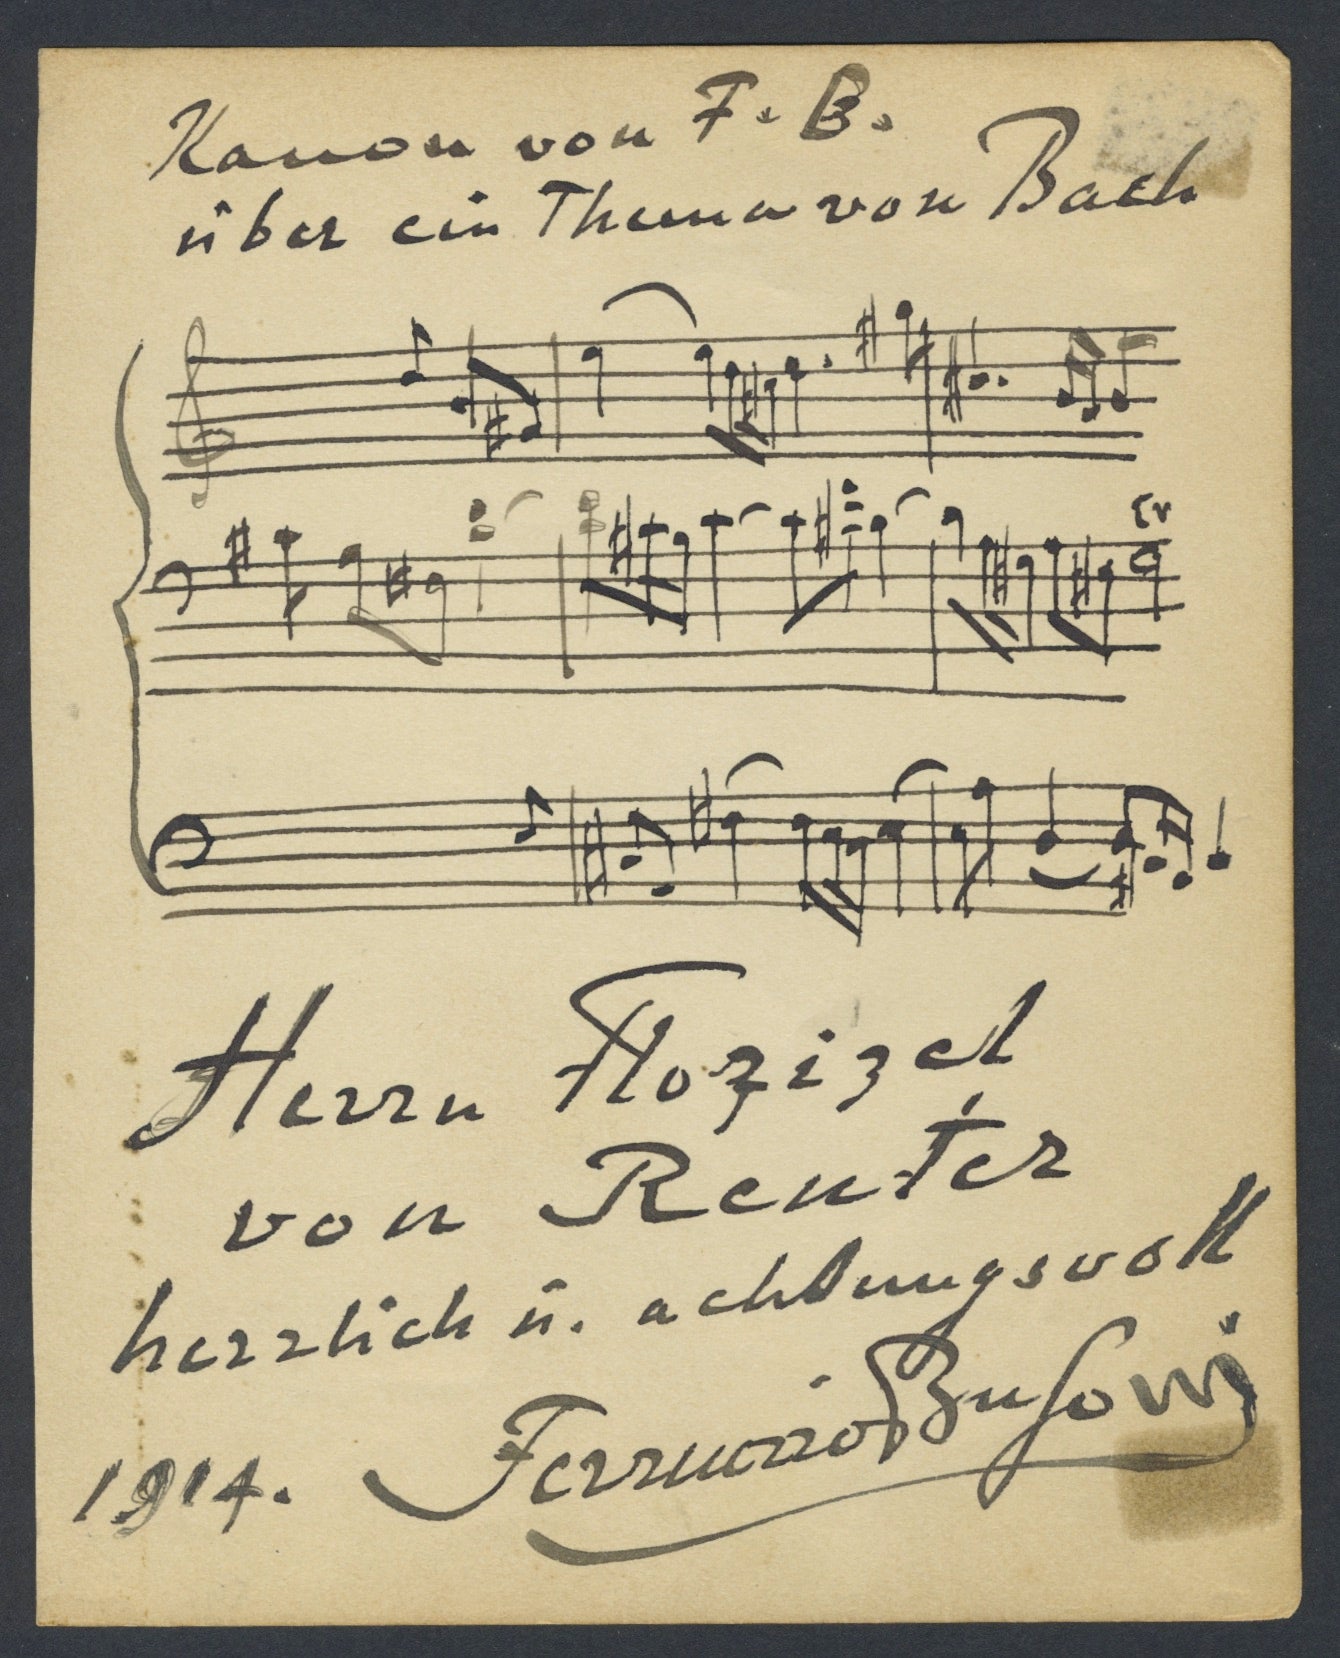 Kanon von F. B.
über ein Thema von Bach
Herrn Florizel
von Reuter
herzlich u. achtungsvoll
1914. Ferruccio Busoni